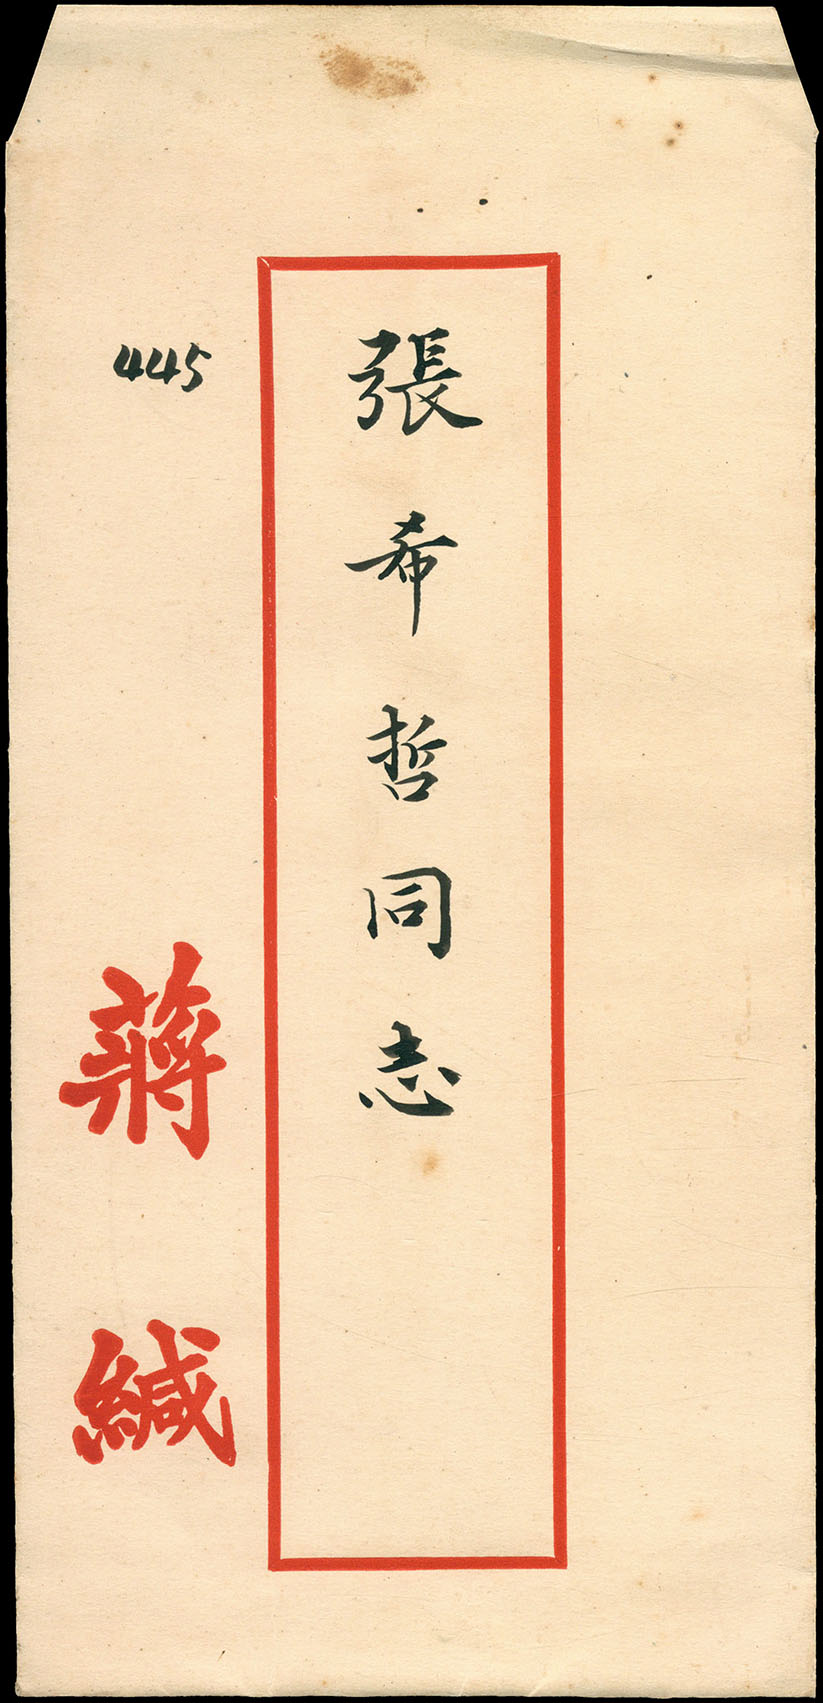 張希哲同志
445
蔣緘